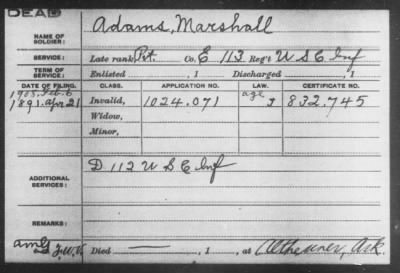 DEAD
Adams, Marshall
NAME OF SOLDIER:
SERVICE: Late rank Pvt. Co. E 113 Reg't U S C Inf
TERM OF SERVICE: Enlisted , 1 Discharged , 1
DATE OF FILING. CLASS. APPLICATION NO. LAW. CERTIFICATE NO.
1903. Feb. 6 age
1891. Apr. 21 Invalid, 1024.071 832.745
Widow,
Minor,
D 112 U S C Inf
ADDITIONAL SERVICES:
REMARKS:
Died — , 1 , at Altheimer, Ark.